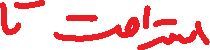 استراحت تا